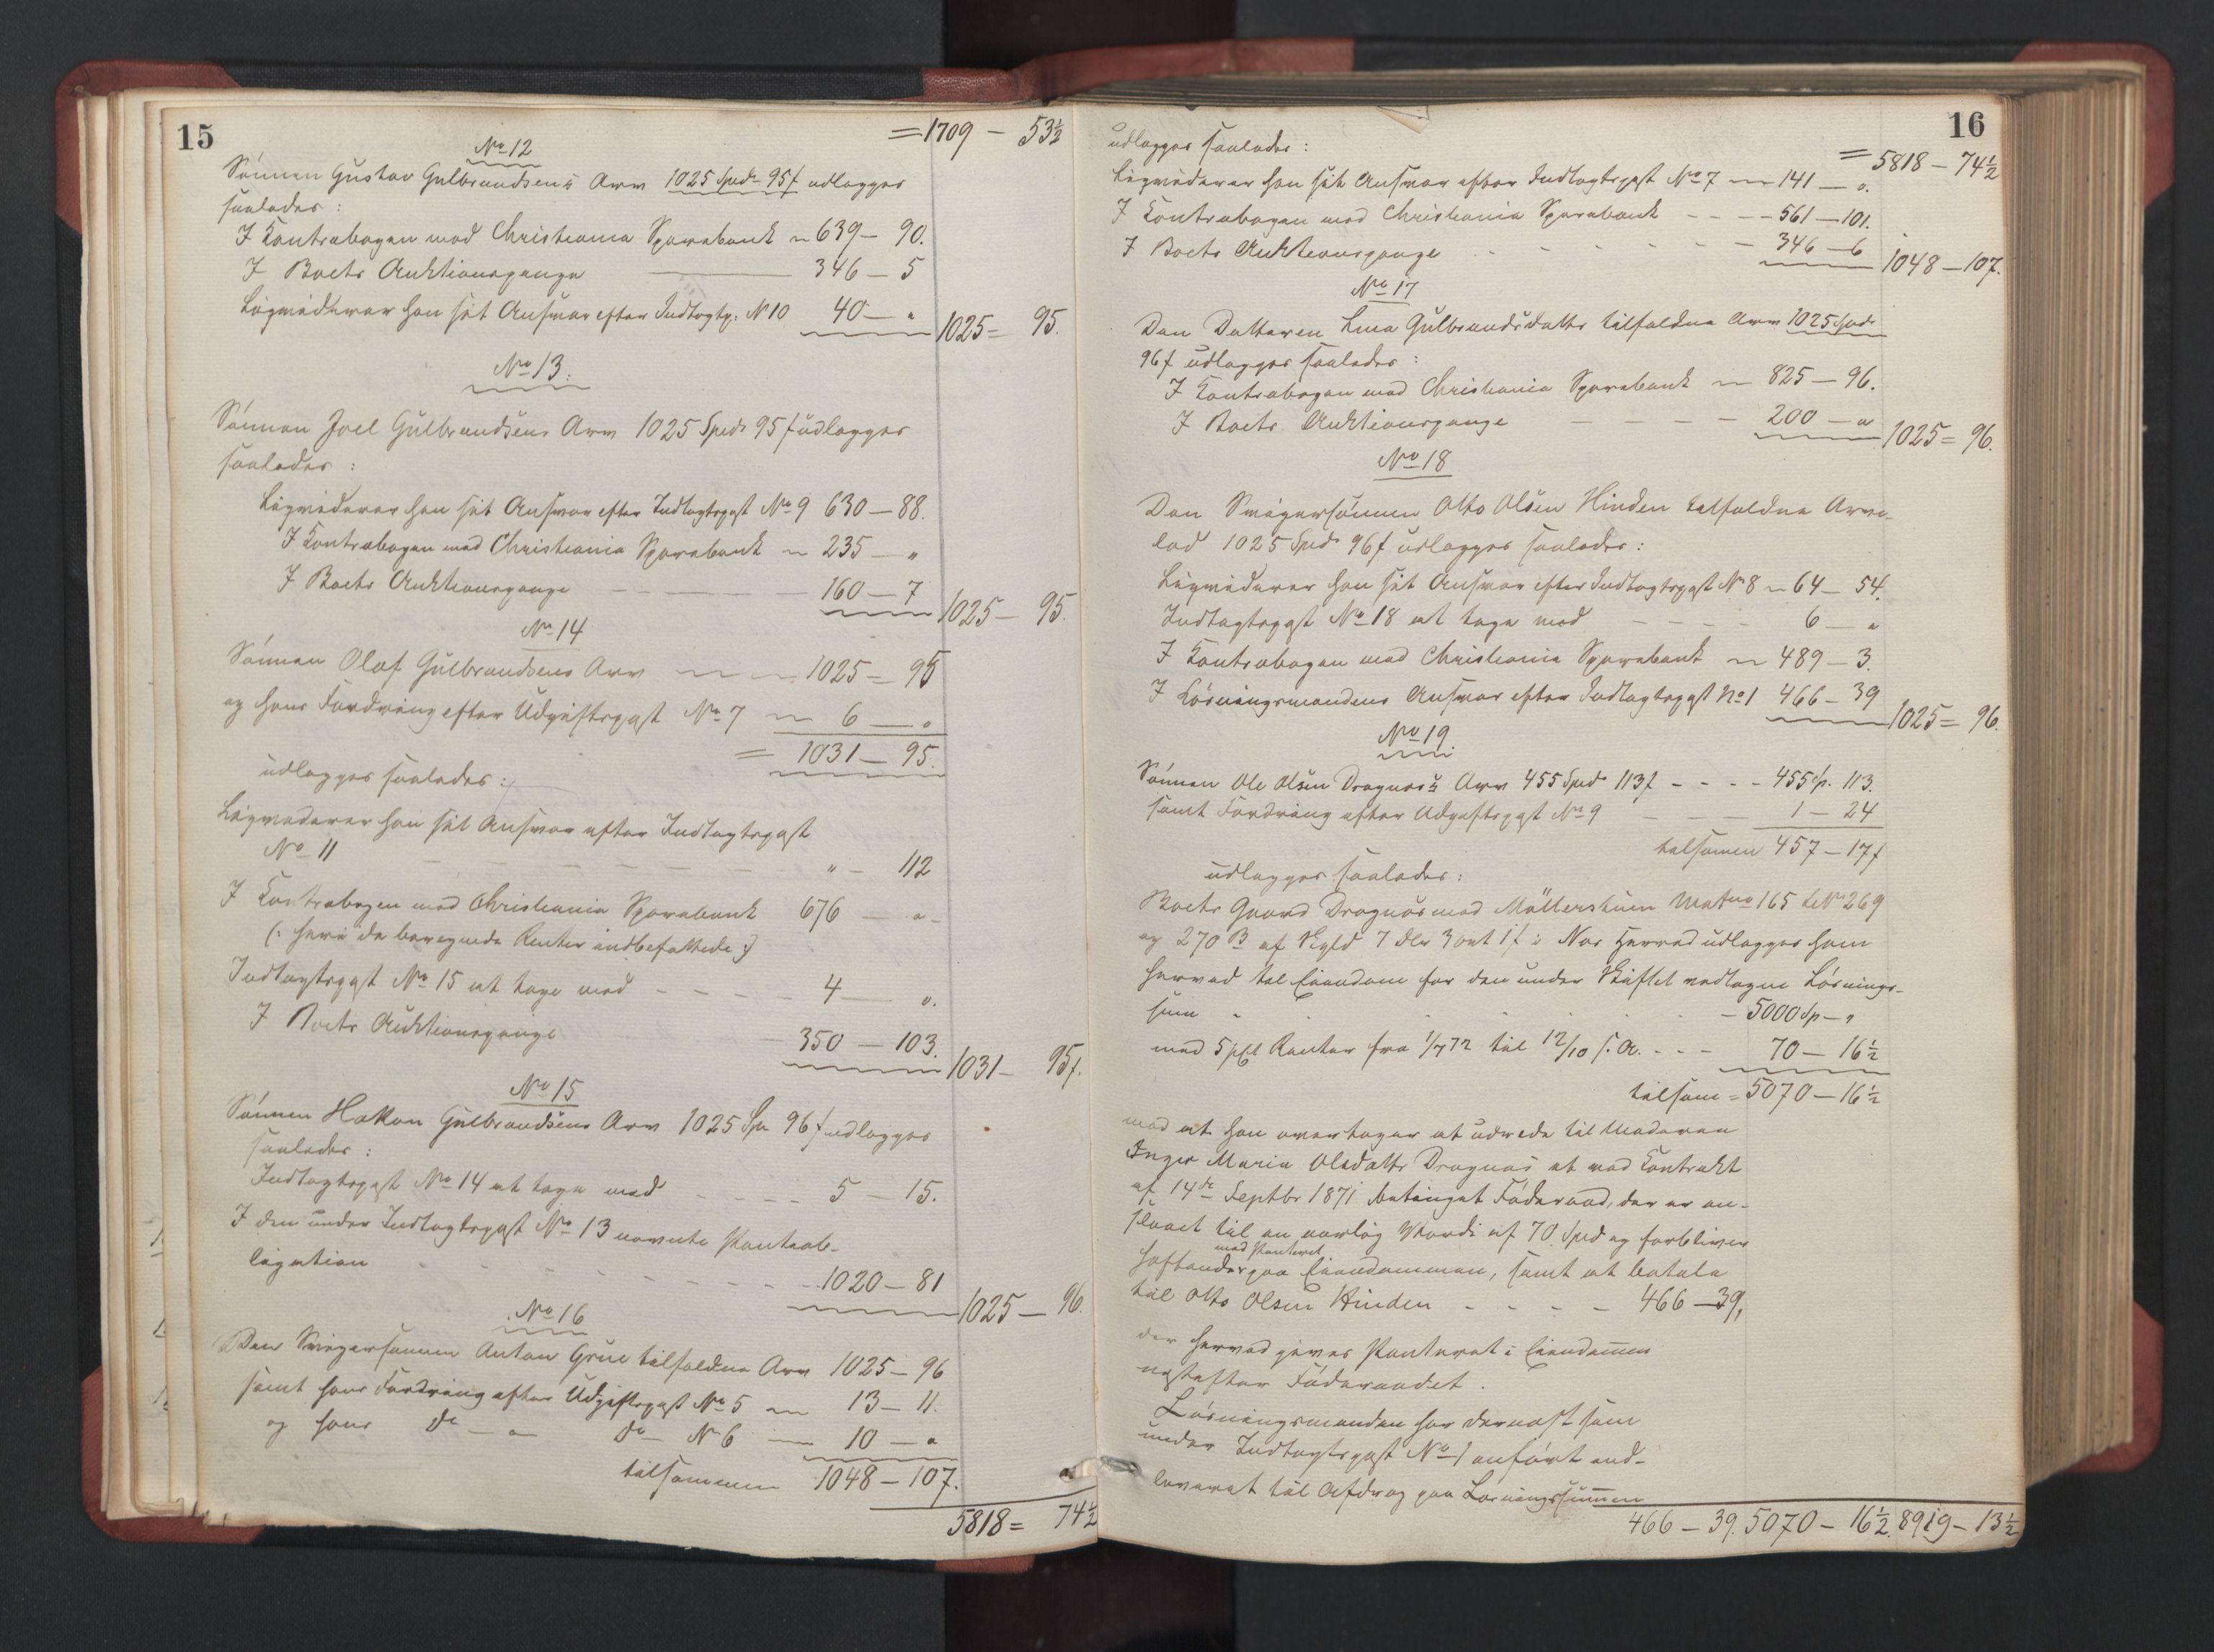 15
= 1709 – 53½
No 12
Sönnen Gustav Gulbrandsens Arv 1025 Spd 95 f udlægges
saaledes :
I Kontrabogen med Christiania Sparebank 639 – 90.
I Boets Auktionspenge 346 – 5
Liqviderer han sit Ansvar efter Indtægtsp. N 10 40 – "
1025 = 95.
No 13.
Sönnen Joel Gulbrandsens Arv 1025 Spd 95 f udlægges
saaledes :
Liqviderer han sit Ansvar efter Indtægtspost No 9 630 – 88.
I Kontrabogen med Christiania Sparebank 235 – "
I Boets Auktionspenge 160 – 7
1025 – 95.
No 14
Sönnen Olaf Gulbrandsens Arv 1025 – 95
og hans Fordring efter Udgiftspost No 7 6 – "
= 1031 – 95.
udlægges saaledes :
Liqviderer han sit Ansvar efter Indtægtspost
No 11 " – 112
I Kontrabogen med Christiania Sparebank 676 – " –
(: heri de beregnede Renter indbefattede :)
Indtægtspost No 15 at tage med 4 – ".
I Boets Auktionspenge 350 – 103.
1031 – 95 f.
No 15
Sönnen Hakon Gulbrandsens Arv 1025 Sp 96 f udlægges
saaledes :
Indtægtspost No 14 at tage med 5 – 15.
I den under Indtægtspost No 13 nævnte Panteob-
ligation 1020 – 81
1025 – 96.
No 16
Den Svigersønnen Anton Grue tilfaldne Arv 1025 – 96
samt hans Fordring efter Udgiftspost No 5 13 – 11.
og hans do – " – do N 6 10 – "
tilsammen 1048 – 107.
5818 = 74½
16
udlægges saaledes :
= 5818 – 74½
Liqviderer han sit Ansvar efter Indtægtspost No 7 141 – ".
I Kontrabogen med Christiania Sparebank 561 – 101.
I Boets Auktionspenge 346 – 6
1048 – 107.
No 17
Den Datteren Lina Gulbrandsdatter tilfaldne Arv 1025 Spd
96 f udlægges saaledes :
I Kontrabogen med Christiania Sparebank 825 – 96.
I Boets Auktionspenge 200 – "
1025 = 96.
No 18
Den Svigersönnen Otto Olsen Hinden tilfaldne Arve-
lod 1025 Spd 96 f udlægges saaledes :
Liqviderer han sit Ansvar efter Indtægtspost N 8 64 – 54.
Indtægtspost No 18 at tage med 6 – "
I Kontrabogen med Christiania Sparebank 489 – 3.
I Løsningsmandens Ansvar efter Indtægtspost No 1 466 – 39
1025 = 96.
No 19.
Sönnen Ole Olsen Dragnæs's Arv 455 Spd 113 f 455 Sp. 113.
samt Fordring efter Udgiftspost No 9 1 – 24
tilsamen 457 – 17 f
udlægges saaledes :
Boets Gaard Dragnæs med Möllerstuen Mat no 165 LNo 269
og 270 B af Skyld 7 Dlr 3 ort 1 f i Næs Herred udlægges ham
herved til Eiendom for den under Skiftet vedtagne Løsnings-
sum – 5000 Sp – "
med 5 pCt Renter fra 1/7 72 til 12/10 s. A. 70 – 16½
tilsam = 5070 – 16½
mod at han overtager at udrede til Moderen
Inger Maria Olsdatter Dragnæs at ved Kontrakt
af 14de Septbr 1871 betinget Föderaad, der er an-
slaaet til en aarlig Værdi af 70 Spd og forbliver
med Panteret
heftende paa Eiendommen, samt at betale
til Otto Olsen Hinden 466 – 39,
der herved gives Panteret i Eiendommen
næstefter Föderaadet.
Løsningsmanden har dernæst som
under Indtægtspost No 1 anført ind-
leveret til Afdrag paa Løsningssummen
466 – 39. 5070 – 16½. 8919 – 13½